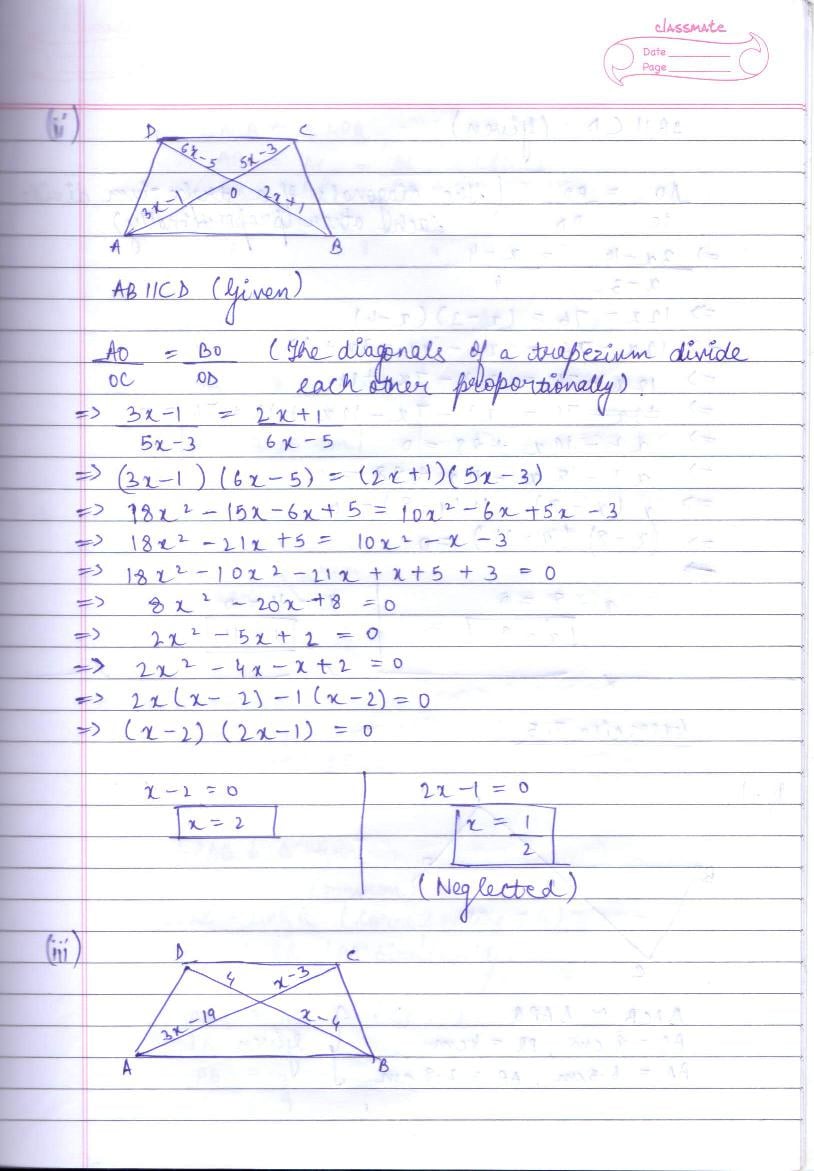 classmate
Date
Page
(ii)
D C
6x-5 5x-3
3x-1 O 2x+1
A B
AB || CD (Given)
AO/OC = BO/OD (The diagonals of a trapezium divide
each other proportionally).
=> 3x-1/5x-3 = 2x+1/6x-5
=> (3x-1) (6x-5) = (2x+1)(5x-3)
=> 18x² - 15x - 6x + 5 = 10x² - 6x + 5x - 3
=> 18x² - 21x + 5 = 10x² - x - 3
=> 18x² - 10x² - 21x + x + 5 + 3 = 0
=> 8x² - 20x + 8 = 0
=> 2x² - 5x + 2 = 0
=> 2x² - 4x - x + 2 = 0
=> 2x(x - 2) - 1(x - 2) = 0
=> (x-2) (2x-1) = 0
x - 2 = 0 2x - 1 = 0
x = 2 x = 1/2
(Neglected)
(iii)
D C
4 x-3
3x-19 x-4
A B